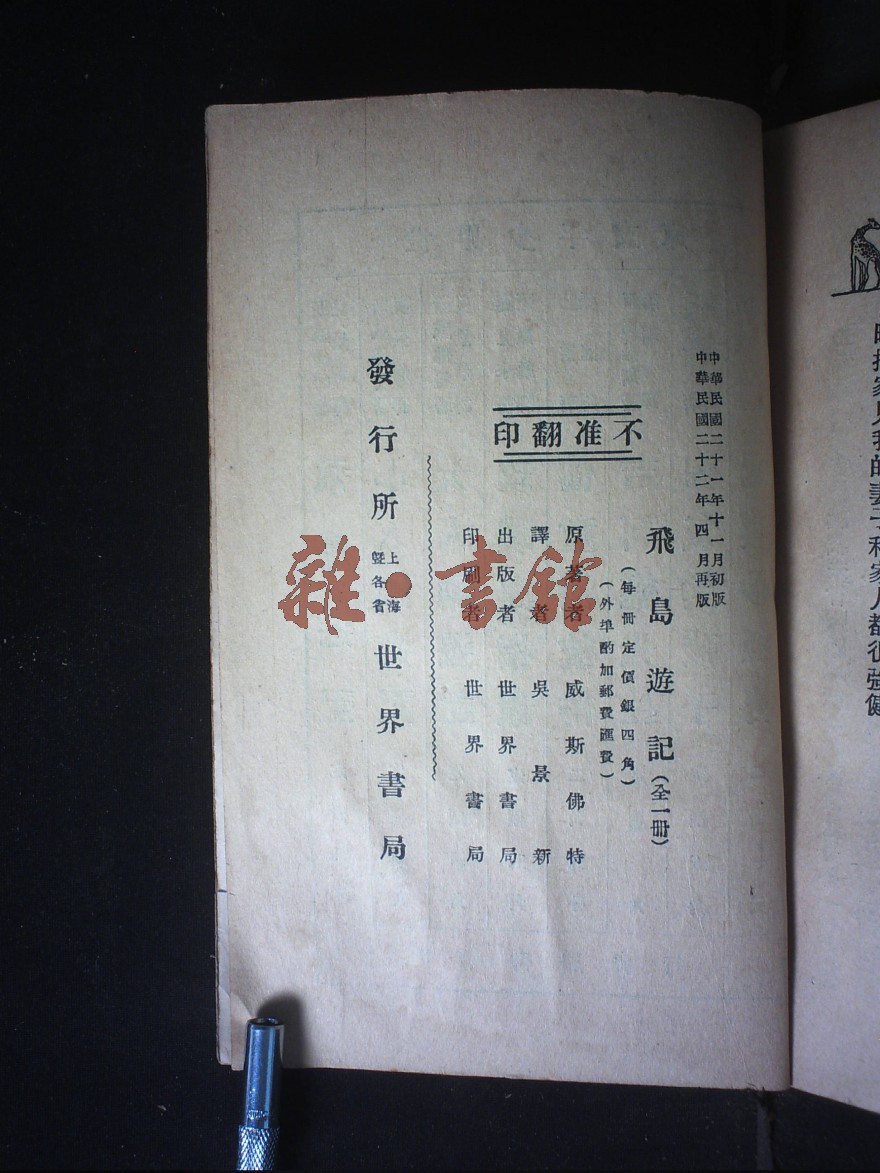 中華民國二十一年十一月初版
中華民國二十二年四月再版
飛島遊記（全一冊）
（每冊定價銀四角）
（外埠酌加郵費匯費）
不准翻印
原著者 威斯佛特
譯者 吳景新
出版者 世界書局
印刷者 世界書局
發行所 上海暨各省 世界書局
雜·書館
的妻子和家人都很強健